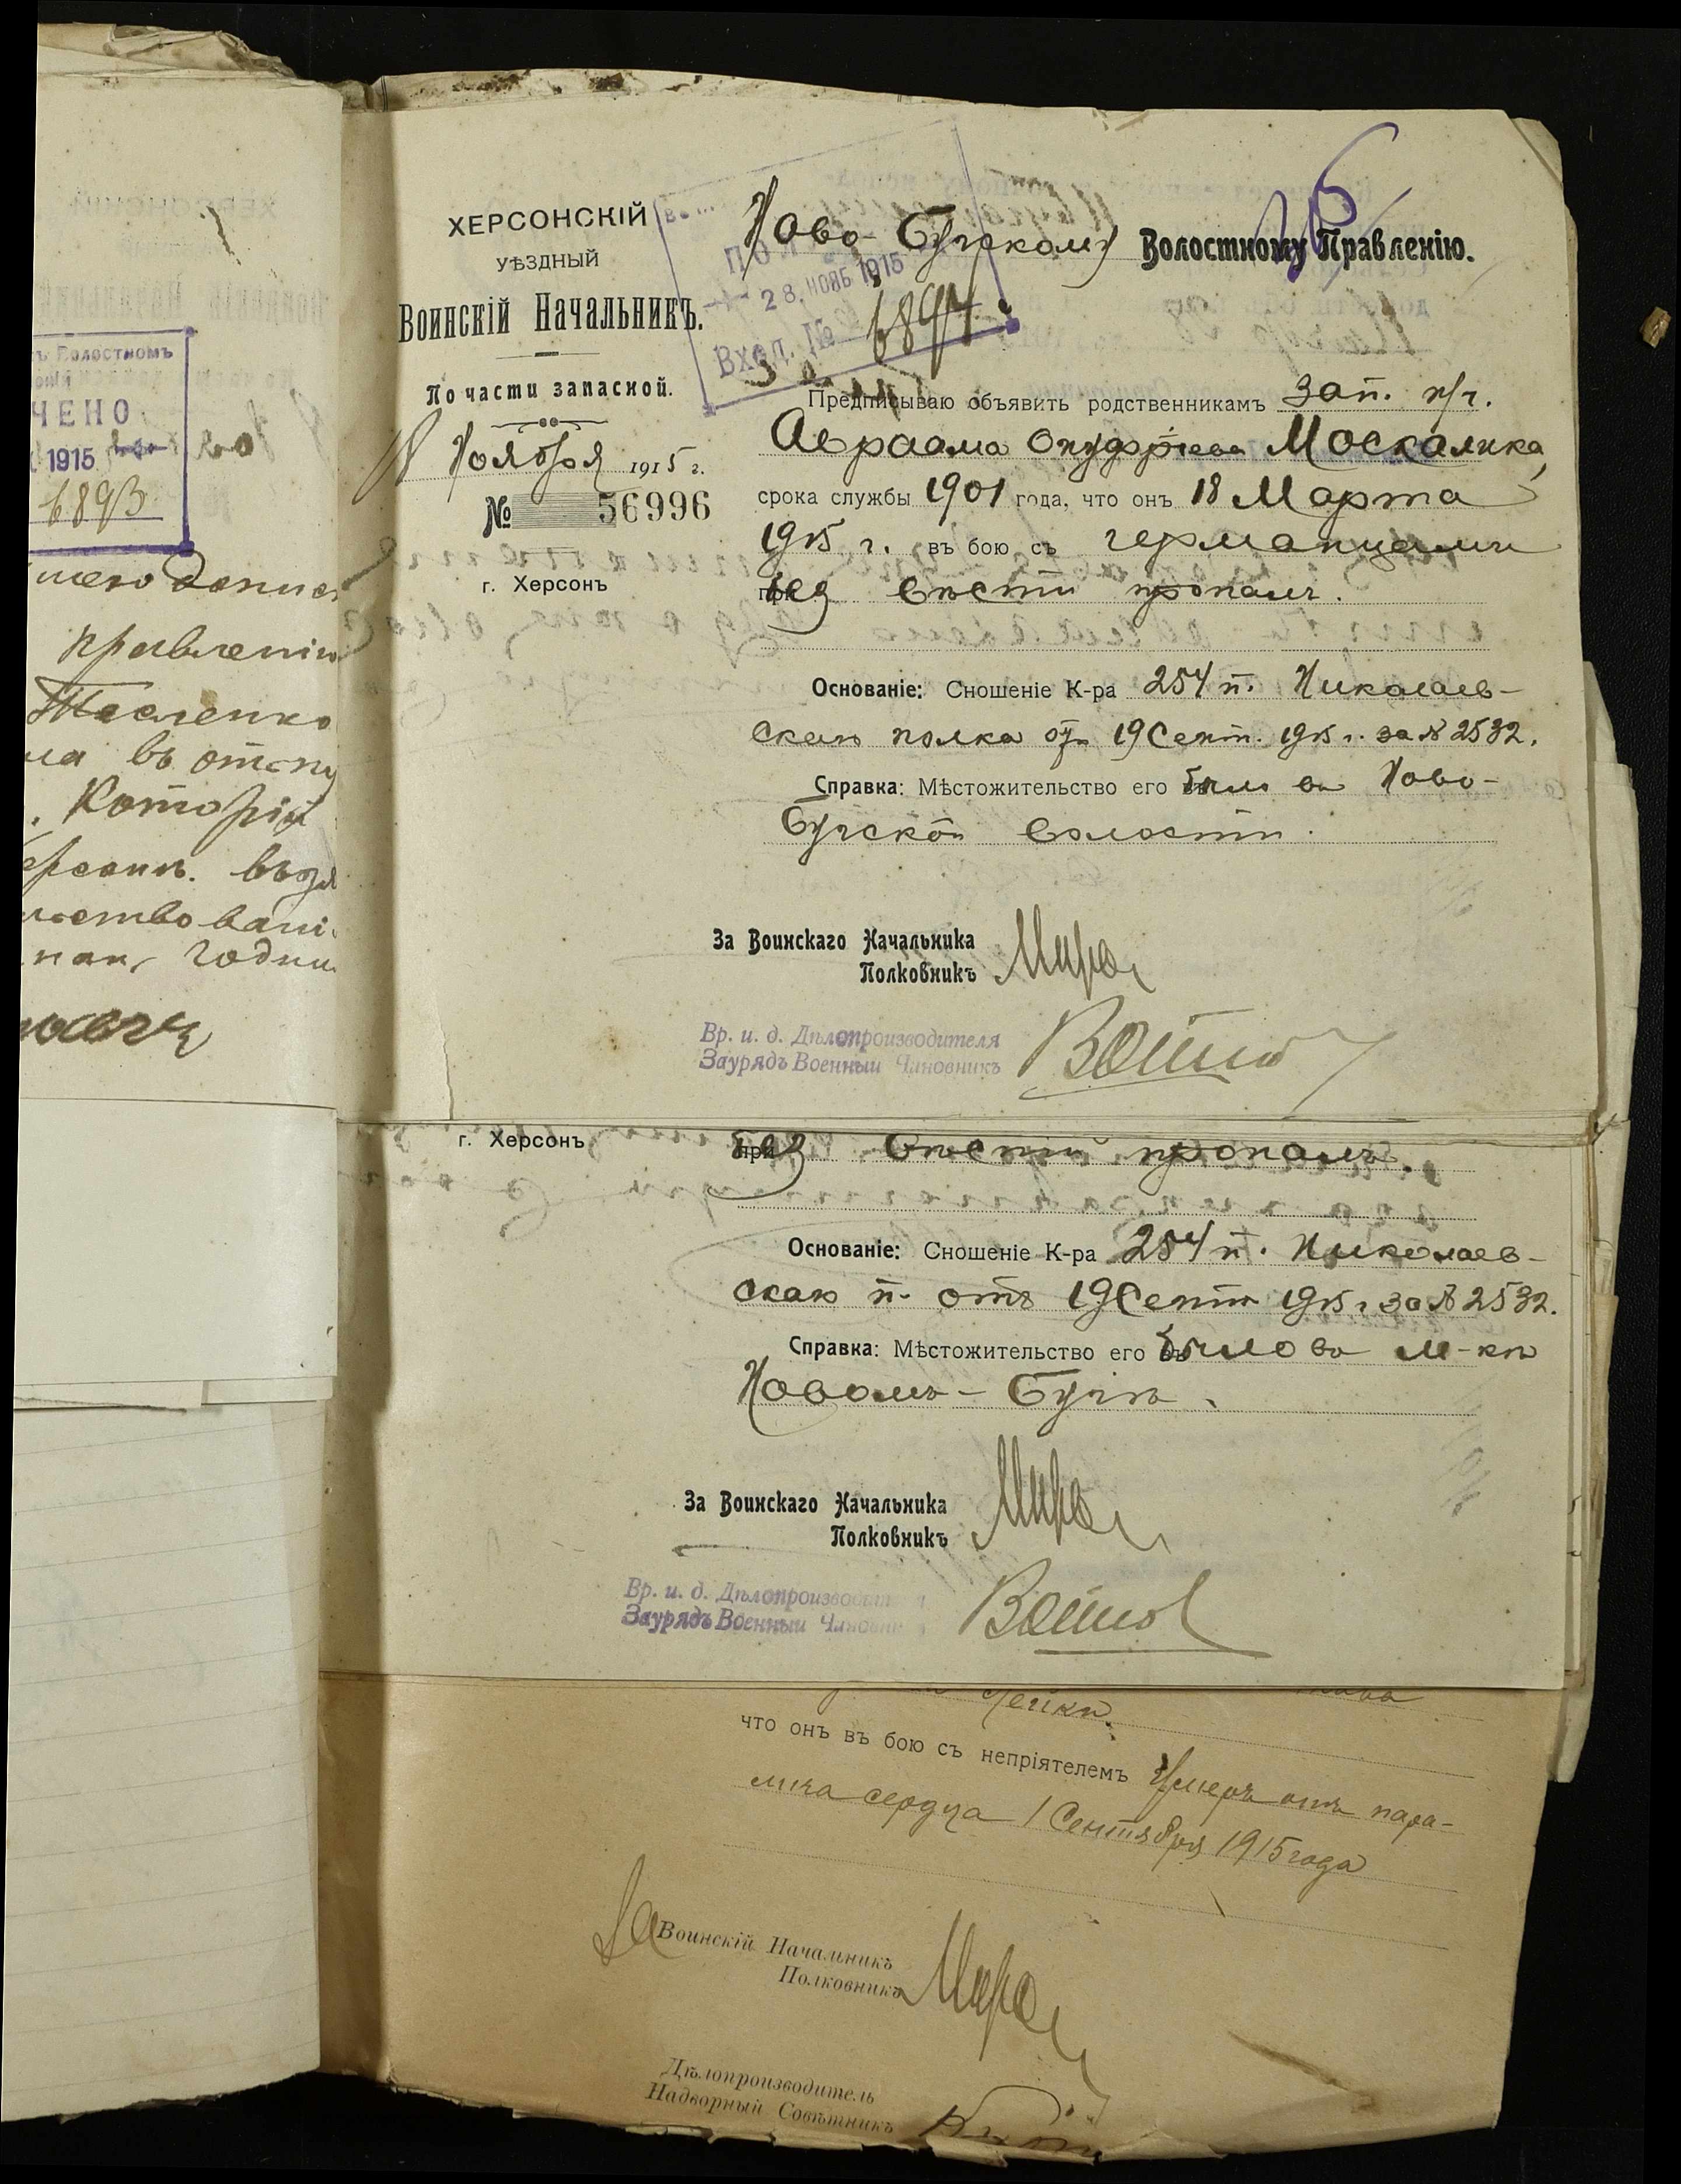 ХЕРСОНСКІЙ
УѢЗДНЫЙ
Воинскій Начальникъ.
По части запасной.
Ноября 1915 г.
№ 56996
г. Херсонъ
Ново-Бугскому Волостному Правленію.
28. НОЯБ 1915
Вход. № 6894
Предписываю объявить родственникамъ зап. р/г.
Авраама Онуфріева Москалика,
срока службы 1901 года, что онъ 18 Марта
1915 г. въ бою съ германцами
без вѣсти пропалъ.
Основаніе: Сношеніе К-ра 254 п. Николаев-
скаго полка отъ 19 Сент. 1915 г. за № 2532.
Справка: Мѣстожительство его было въ Ново-
Бугской волости.
За Воинскаго Начальника
Полковникъ
Вр. и. д. Дѣлопроизводителя
Заурядъ Военный Чиновникъ
г. Херсонъ
без вѣсти пропалъ.
Основаніе: Сношеніе К-ра 254 п. Николаев-
скаго п. отъ 19 Сент 1915 г за № 2532.
Справка: Мѣстожительство его было въ м-кѣ
Новомъ-Бугѣ.
За Воинскаго Начальника
Полковникъ
Вр. и. д. Дѣлопроизводит
Заурядъ Военный Чиновник
что онъ въ бою съ непріятелемъ Умеръ отъ пара-
лича сердца 1 Сентября 1915 года
За Воинскій Начальникъ
Полковникъ
Дѣлопроизводитель
Надворный Совѣтникъ
ъ Волостномъ
ЧЕНО
1915
6893
правленію
Тесленко
ла въ отпу
. Которій
ерсонъ. въ
годни